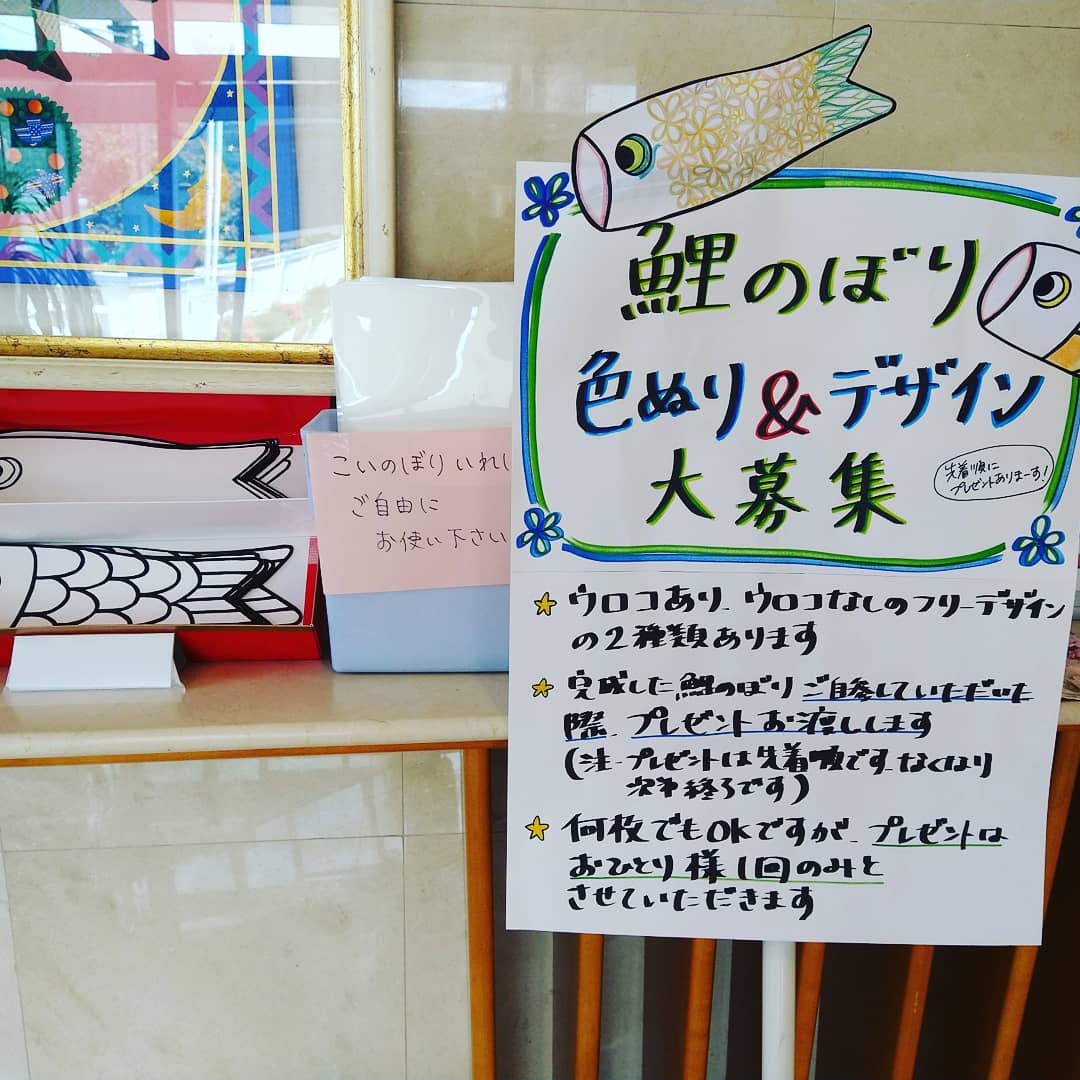 鯉のぼり
色ぬり&デザイン
大募集
先着順に
プレゼントありまーす!
☆ウロコあり、ウロコなしのフリーデザイン
の2種類あります
☆完成した鯉のぼりご自参していただいた
際、プレゼントお渡しします
(注-プレゼントは先着順です、なくなり
次第終了です)
☆何枚でもOKですが、プレゼントは
おひとり様1回のみと
させていただきます
こいのぼりいれ
ご自由に
お使い下さい